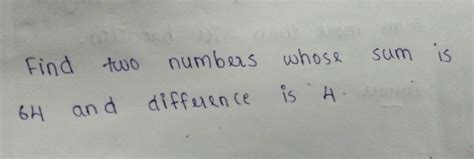 Find two numbers whose sum is
64 and difference is 4.